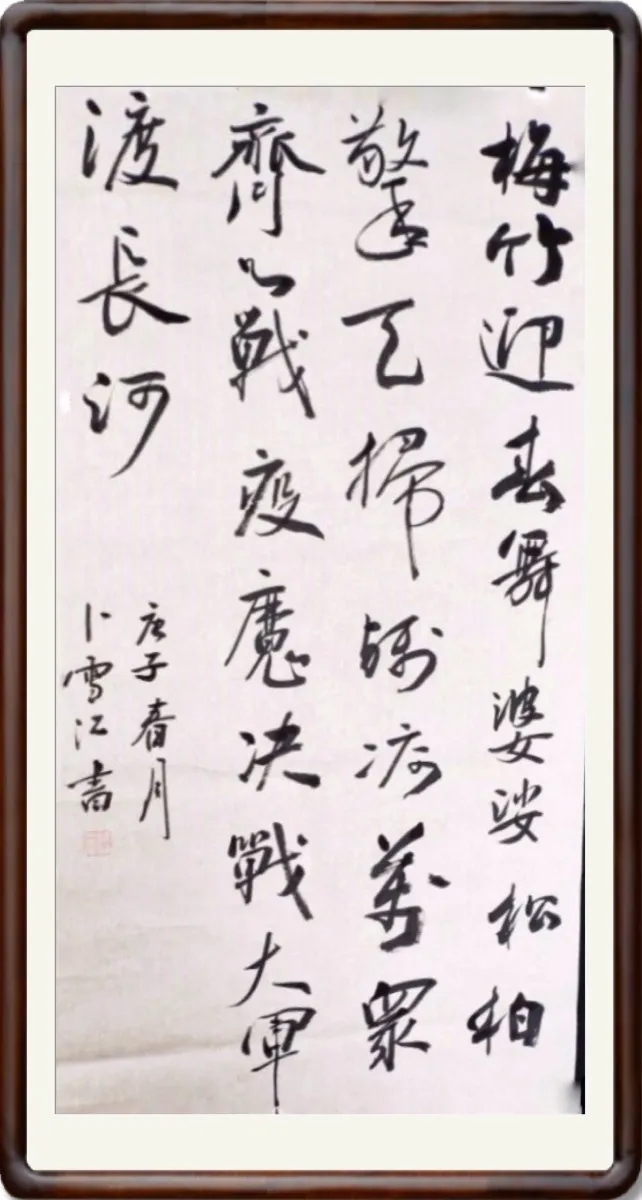 梅竹迎春舞婆娑松柏
擎天掃殘疴萬眾
齊心戰疫魔決戰大軍
渡長河
庚子春月
卜雪江書